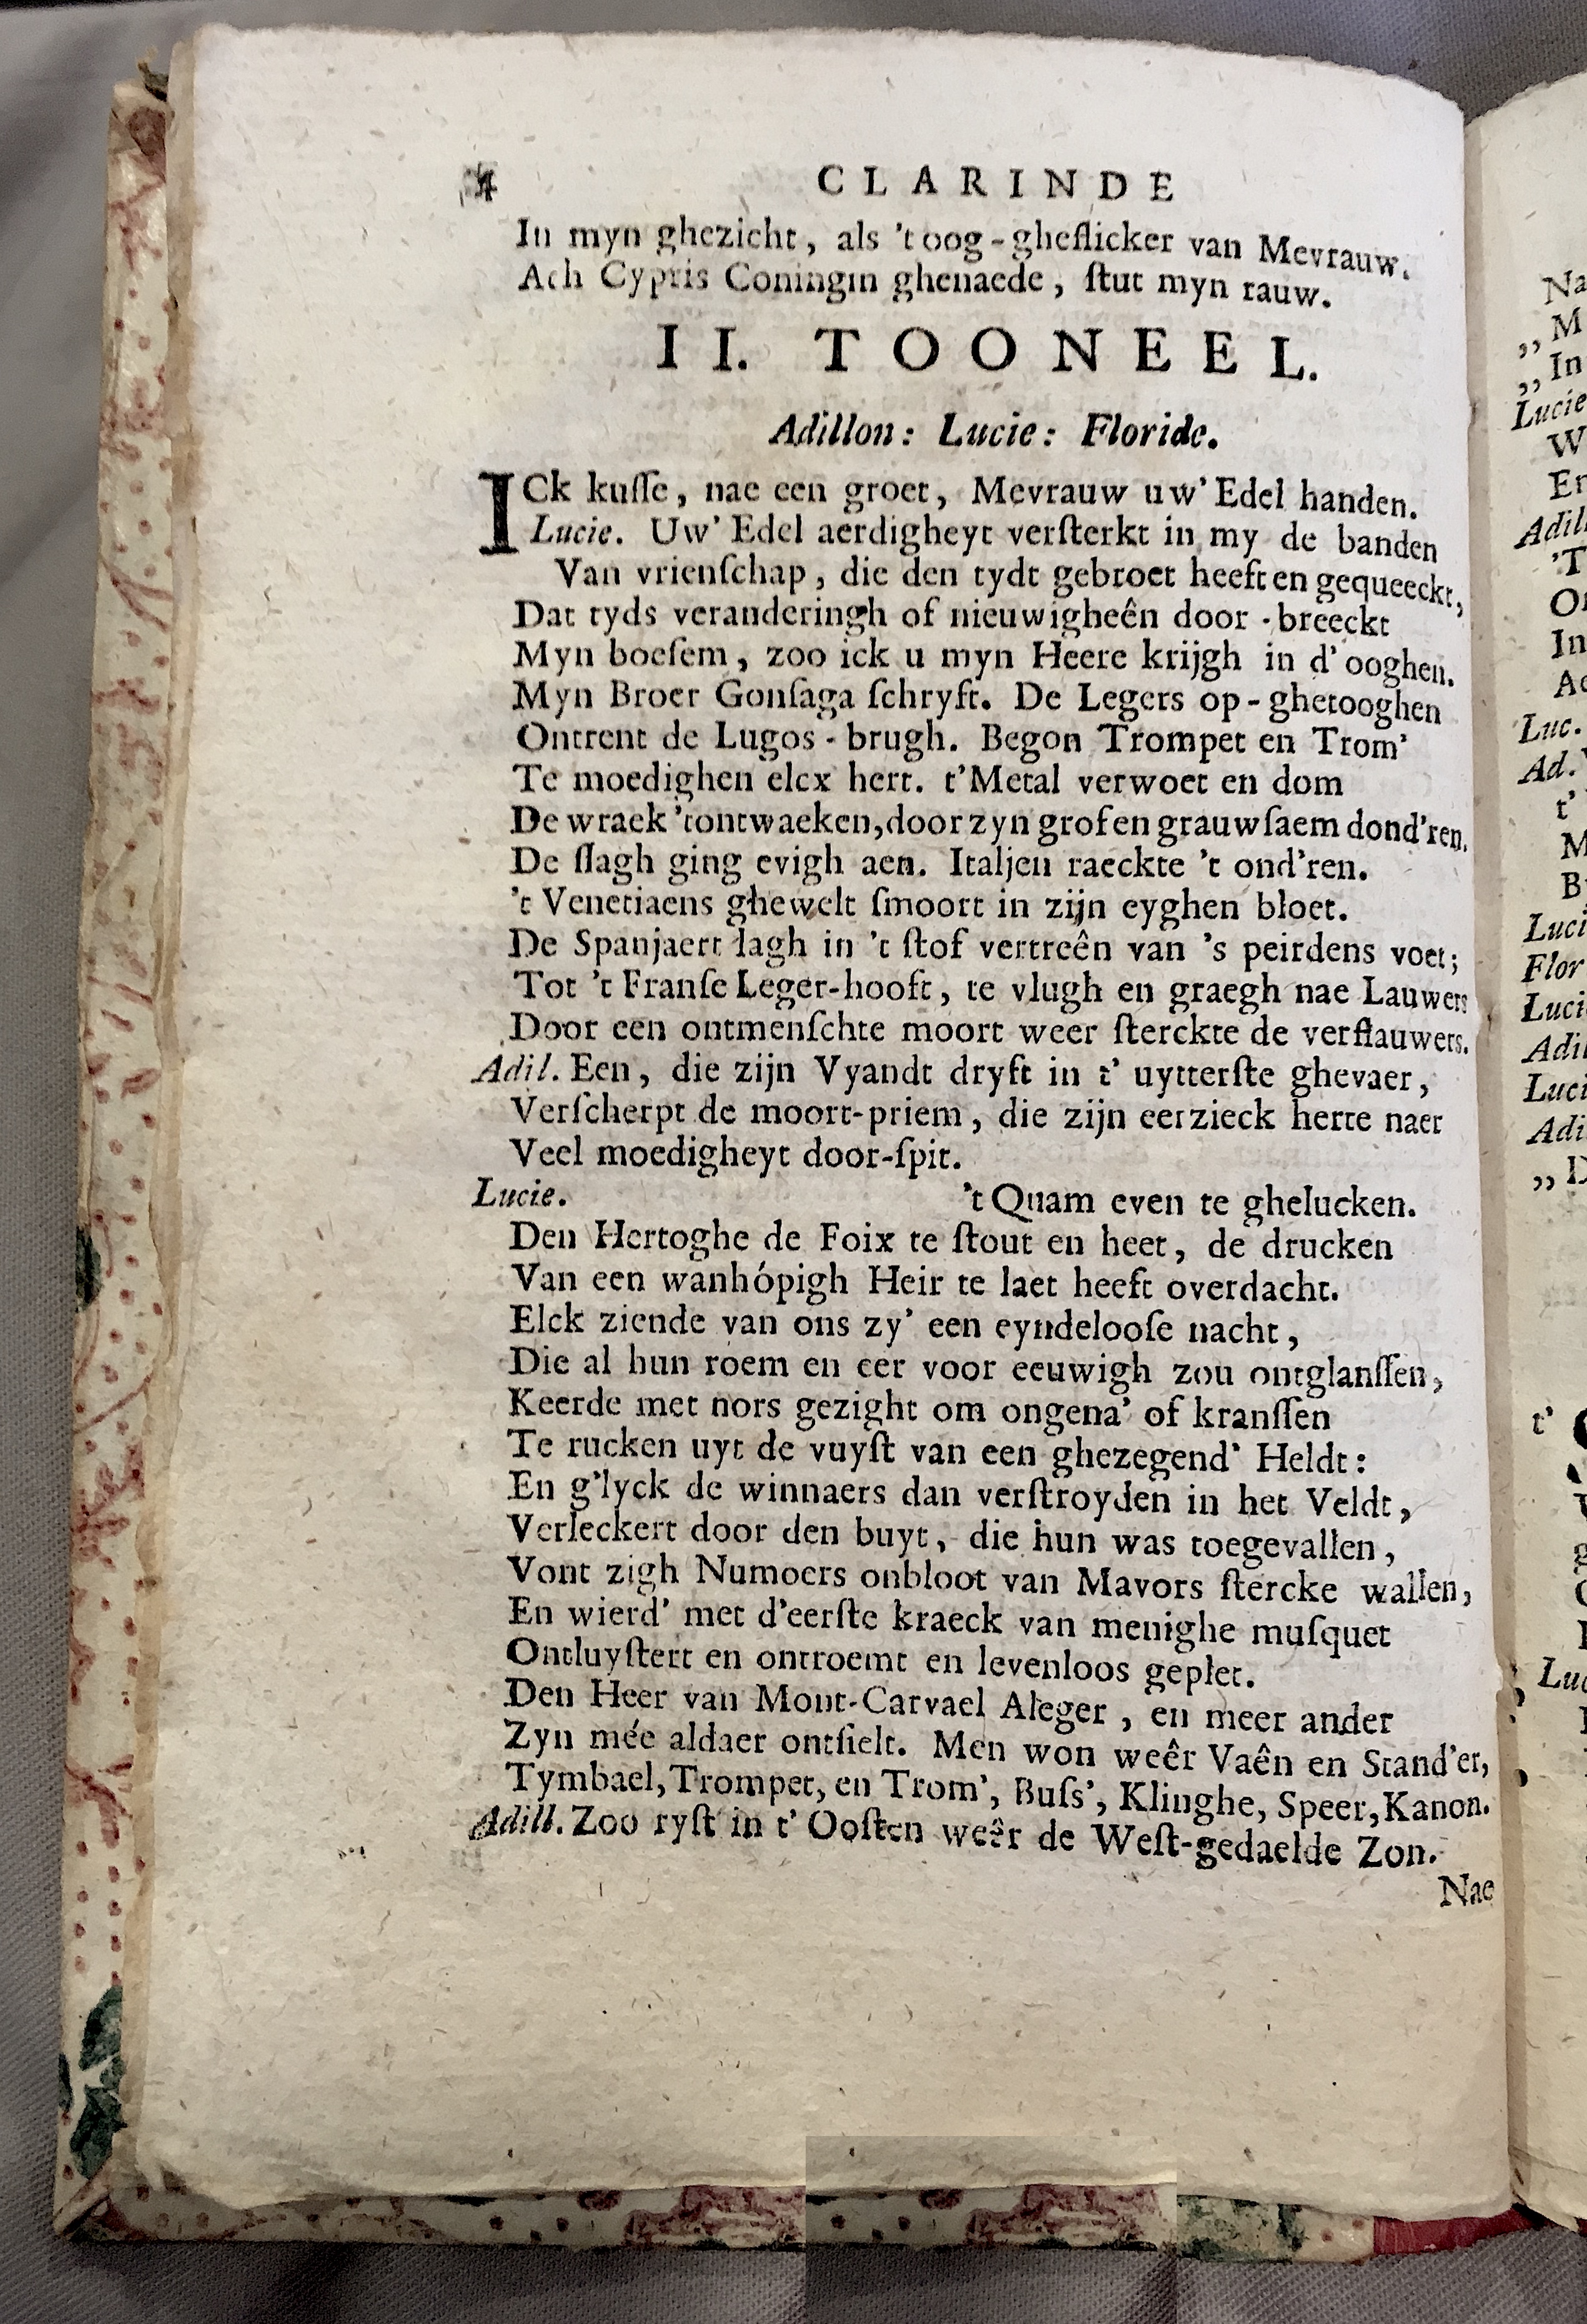 4 CLARINDE
In myn ghezicht, als 't oog-gheflicker van Mevrauw.
Ach Cypris Coningin ghenaede, ſtut myn rauw.
II. TOONEEL.
Adillon: Lucie: Floride.
ICk kuſſe, nae een groet, Mevrauw uw' Edel handen.
Lucie. Uw' Edel aerdigheyt verſterkt in my de banden
Van vrienſchap, die den tydt gebroet heeft en gequeeckt,
Dat tyds veranderingh of nieuwigheên door-breeckt
Myn boeſem, zoo ick u myn Heere krijgh in d' ooghen.
Myn Broer Gonſaga ſchryft. De Legers op-ghetooghen
Ontrent de Lugos-brugh. Begon Trompet en Trom'
Te moedighen elcx hert. t'Metal verwoet en dom
De wraek 'tontwaeken, door zyn grof en grauwſaem dond'ren.
De ſlagh ging evigh aen. Italjen raeckte 't ond'ren.
't Venetiaens ghewelt ſmoort in zijn eyghen bloet.
De Spanjaert lagh in 't ſtof vertreên van 's peirdens voet;
Tot 't Franſe Leger-hooft, te vlugh en graegh nae Lauwers
Door een ontmenſchte moort weer ſterckte de verflauwers.
Adil. Een, die zijn Vyandt dryft in t' uytterſte ghevaer,
Verſcherpt de moort-priem, die zijn eerzieck herte naer
Veel moedigheyt door-ſpit.
Lucie. 't Quam even te ghelucken.
Den Hertoghe de Foix te ſtout en heet, de drucken
Van een wanhópigh Heir te laet heeft overdacht.
Elck ziende van ons zy' een eyndelooſe nacht,
Die al hun roem en eer voor eeuwigh zou ontglanſſen,
Keerde met nors gezight om ongena' of kranſſen
Te rucken uyt de vuyſt van een ghezegend' Heldt:
En g'lyck de winnaers dan verſtroyden in het Veldt,
Verleckert door den buyt, die hun was toegevallen,
Vont zigh Numoers onbloot van Mavors ſtercke wallen,
En wierd' met d'eerſte kraeck van menighe muſquet
Ontluyſtert en ontroemt en levenloos geplet.
Den Heer van Mont-Carvael Aleger, en meer ander
Zyn mée aldaer ontſielt. Men won weêr Vaên en Stand'er,
Tymbael, Trompet, en Trom', Buſs', Klinghe, Speer, Kanon.
Adill. Zoo ryſt in t' Ooſten weêr de Weſt-gedaelde Zon.
Nae
Na
,, M
,, In
Lucie
W
En
Adill
'T
On
In
Ac
Luc.
Ad.
t'
M
B
Luci
Flor
Luci
Adil
Luci
Adi
,, D
t'
Luc